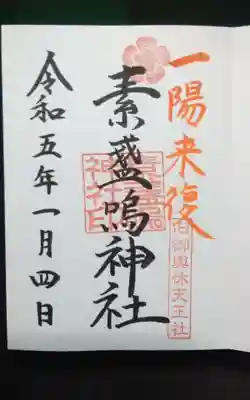 一陽来復
素盛嗚神社
令和五年一月四日
御輿休天王社